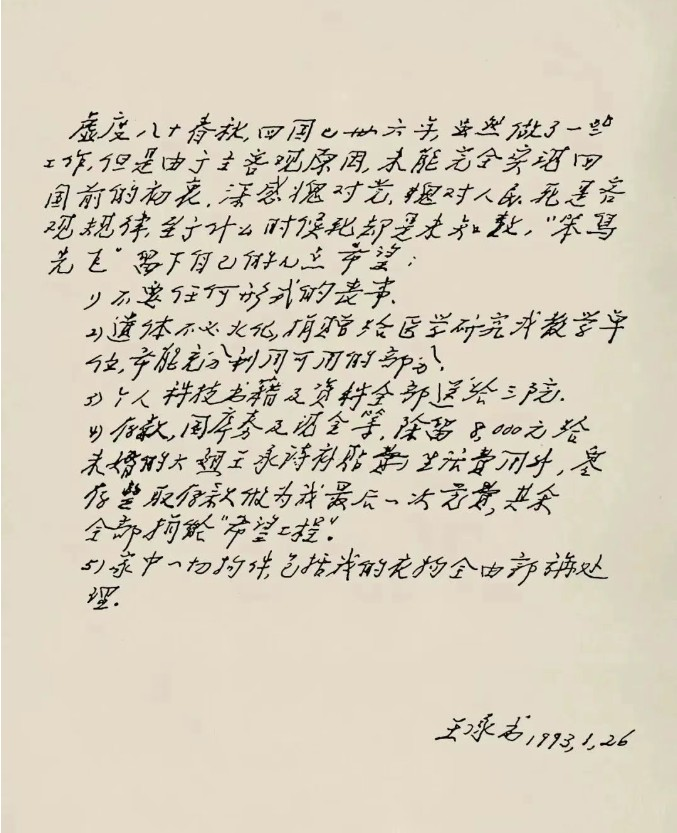 虚度八十春秋,回国已卅六年,虽然做了一些
工作,但是由于主客观原因,未能完全实现回
国前的初衷,深感愧对党,愧对人民。死是客
观规律,至于什么时候死却是未知数,“笨鸟
先飞”留下自己的几点希望:
1)不要任何形式的丧事。
2)遗体不必火化,捐赠给医学研究或教学单
位,希能充分利用可用的部分。
3)个人科技书籍及资料全部送给三院。
4)存款,国库券及现金等,除留8,000元给
未婚的大姐王承诗补贴生活费用外,
存整取存款做为我最后一次党费,其余
全部捐给“希望工程”。
5)家中一切物件,包括我的衣物全由郭祸处
理。
王承书1993,1,26